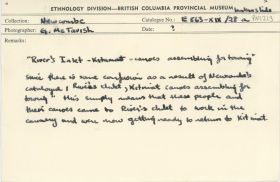 ETHNOLOGY DIVISION—BRITISH COLUMBIA PROVINCIAL MUSEUM
Collection: Newcombe Catalogue No.: E 863-XIX/28 a
Photographer: G. McTavish Date: ?
Remarks:
"River's Inlet - Kitimat - canoes assembling for towing"
Since there is some confusion as a result of Newcombe's
catalogue, Rivers Inlet, Kitimat canoes assembling for
towing". This simply means that these people and
their canoes came to River's Inlet to work in the
cannery and are now getting ready to return to Kitimat